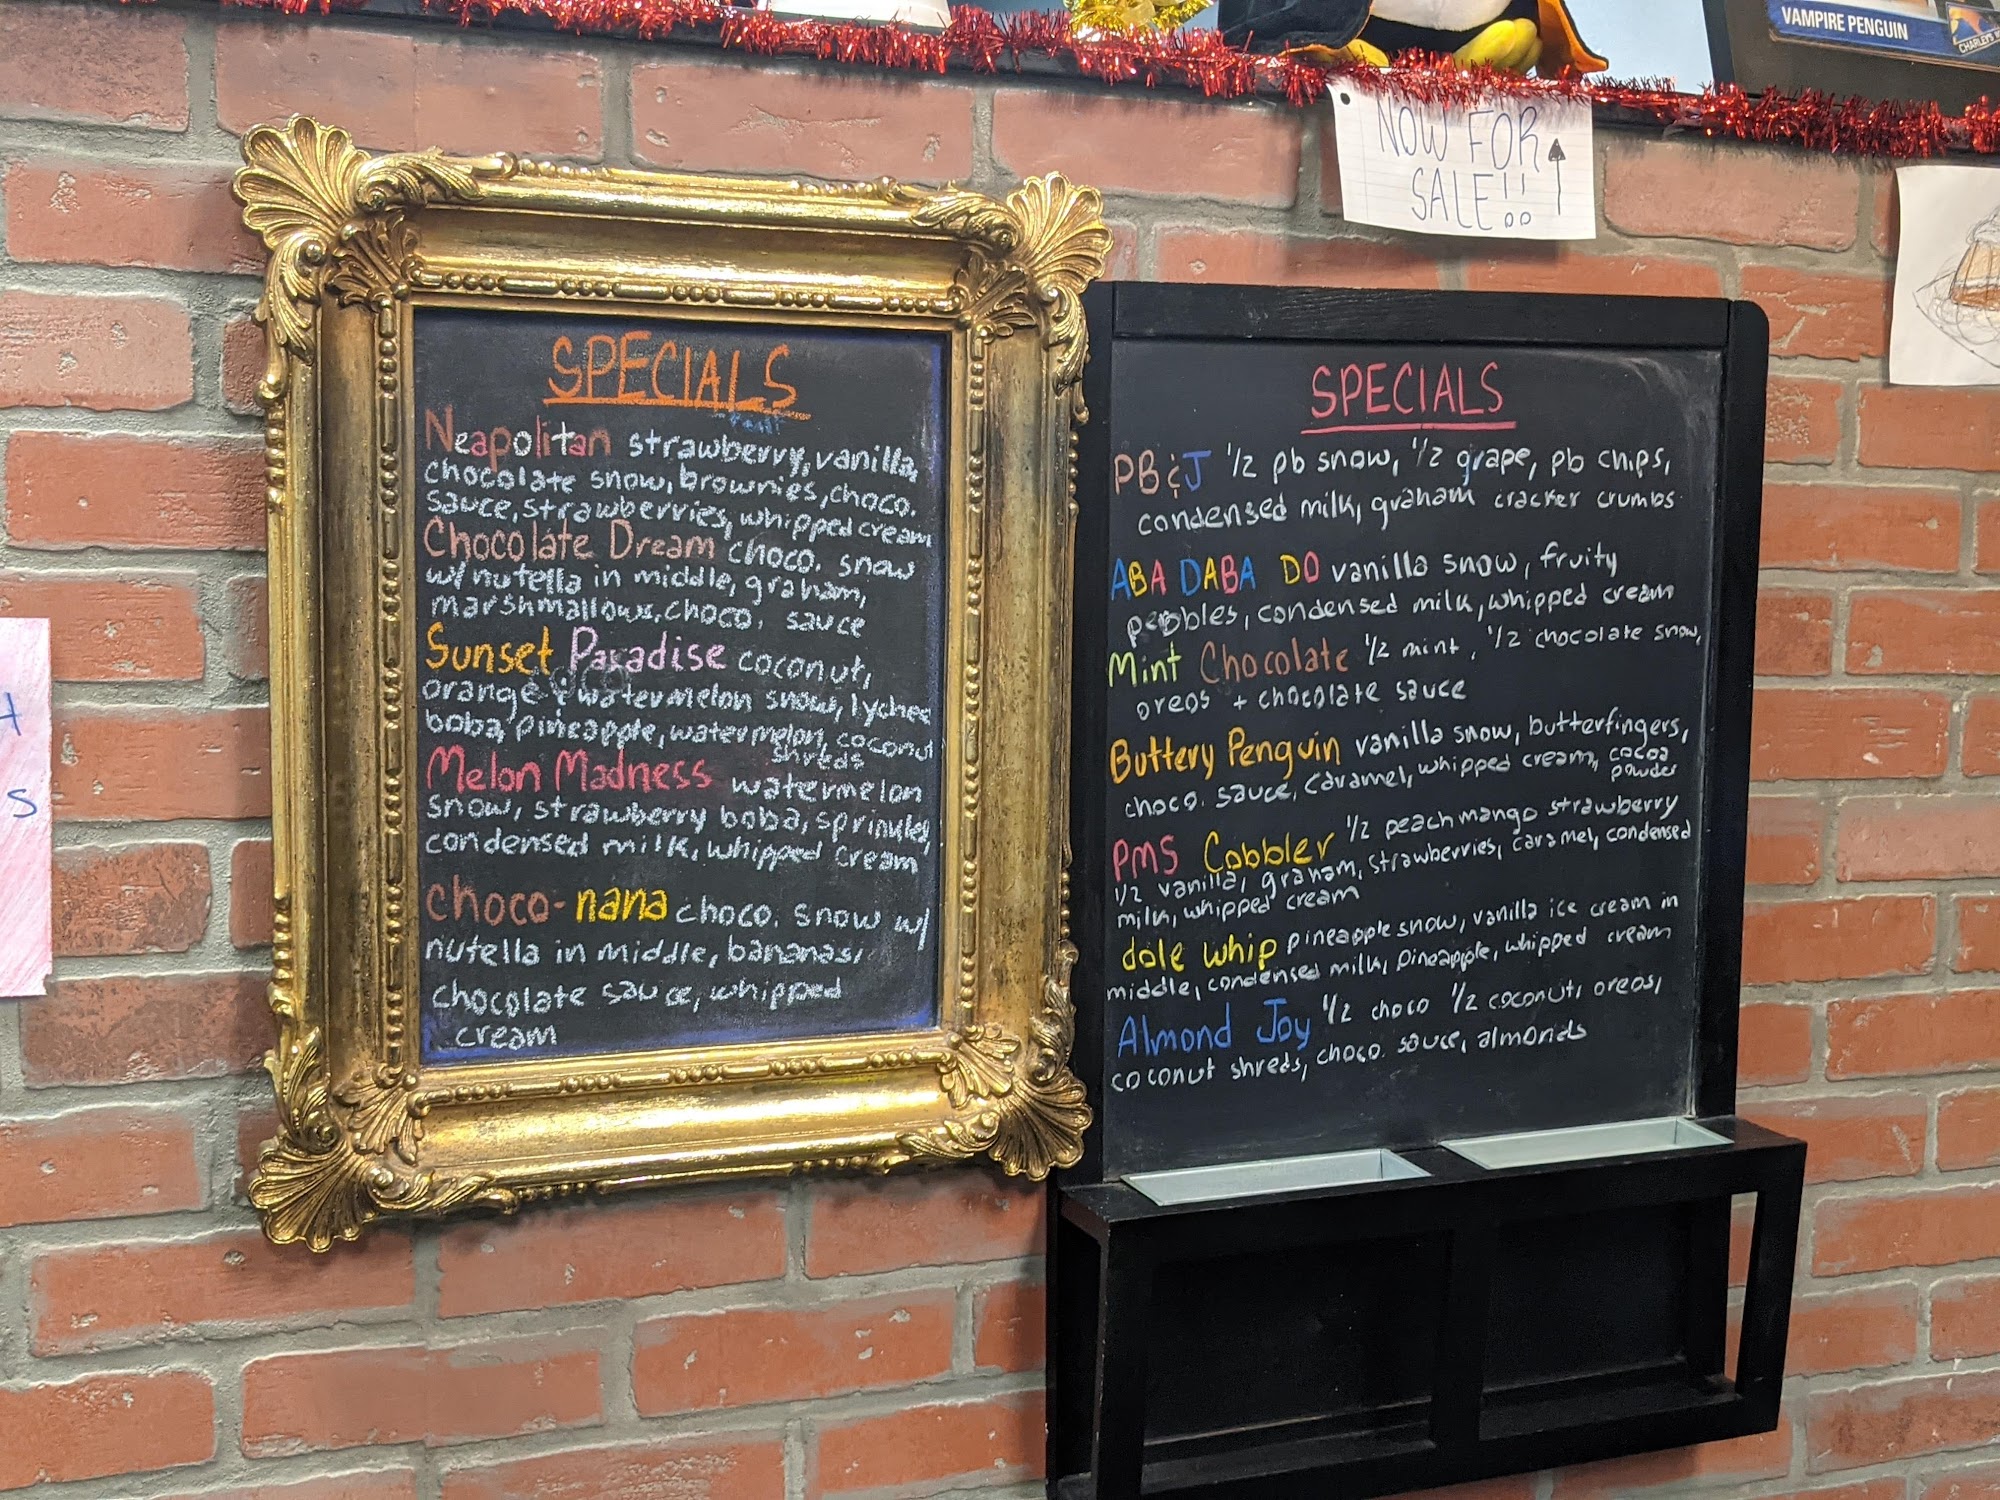 VAMPIRE PENGUIN
NOW FOR
SALE!!
SPECIALS
Neapolitan strawberry, vanilla,
chocolate snow, brownies, choco.
sauce, strawberries, whipped cream
Chocolate Dream choco. snow
w/ nutella in middle, graham,
marshmallows, choco. sauce
Sunset Paradise coconut,
orange & watermelon snow, lychee
boba, pineapple, watermelon, coconut
shreds
Melon Madness watermelon
snow, strawberry boba, sprinkles,
condensed milk, whipped cream
choco-nana choco. snow w/
nutella in middle, bananas,
chocolate sauce, whipped
cream
SPECIALS
PB & J 1/2 pb snow, 1/2 grape, pb chips,
condensed milk, graham cracker crumbs
ABA DABA DO vanilla snow, fruity
pebbles, condensed milk, whipped cream
Mint Chocolate 1/2 mint, 1/2 chocolate snow,
oreos + chocolate sauce
Buttery Penguin vanilla snow, butterfingers,
choco. sauce, caramel, whipped cream, cocoa
powder
PMS Cobbler 1/2 peach mango strawberry
1/2 vanilla, graham, strawberries, caramel, condensed
milk, whipped cream
dole whip pineapple snow, vanilla ice cream in
middle, condensed milk, pineapple, whipped cream
Almond Joy 1/2 choco 1/2 coconut, oreos,
coconut shreds, choco. sauce, almonds